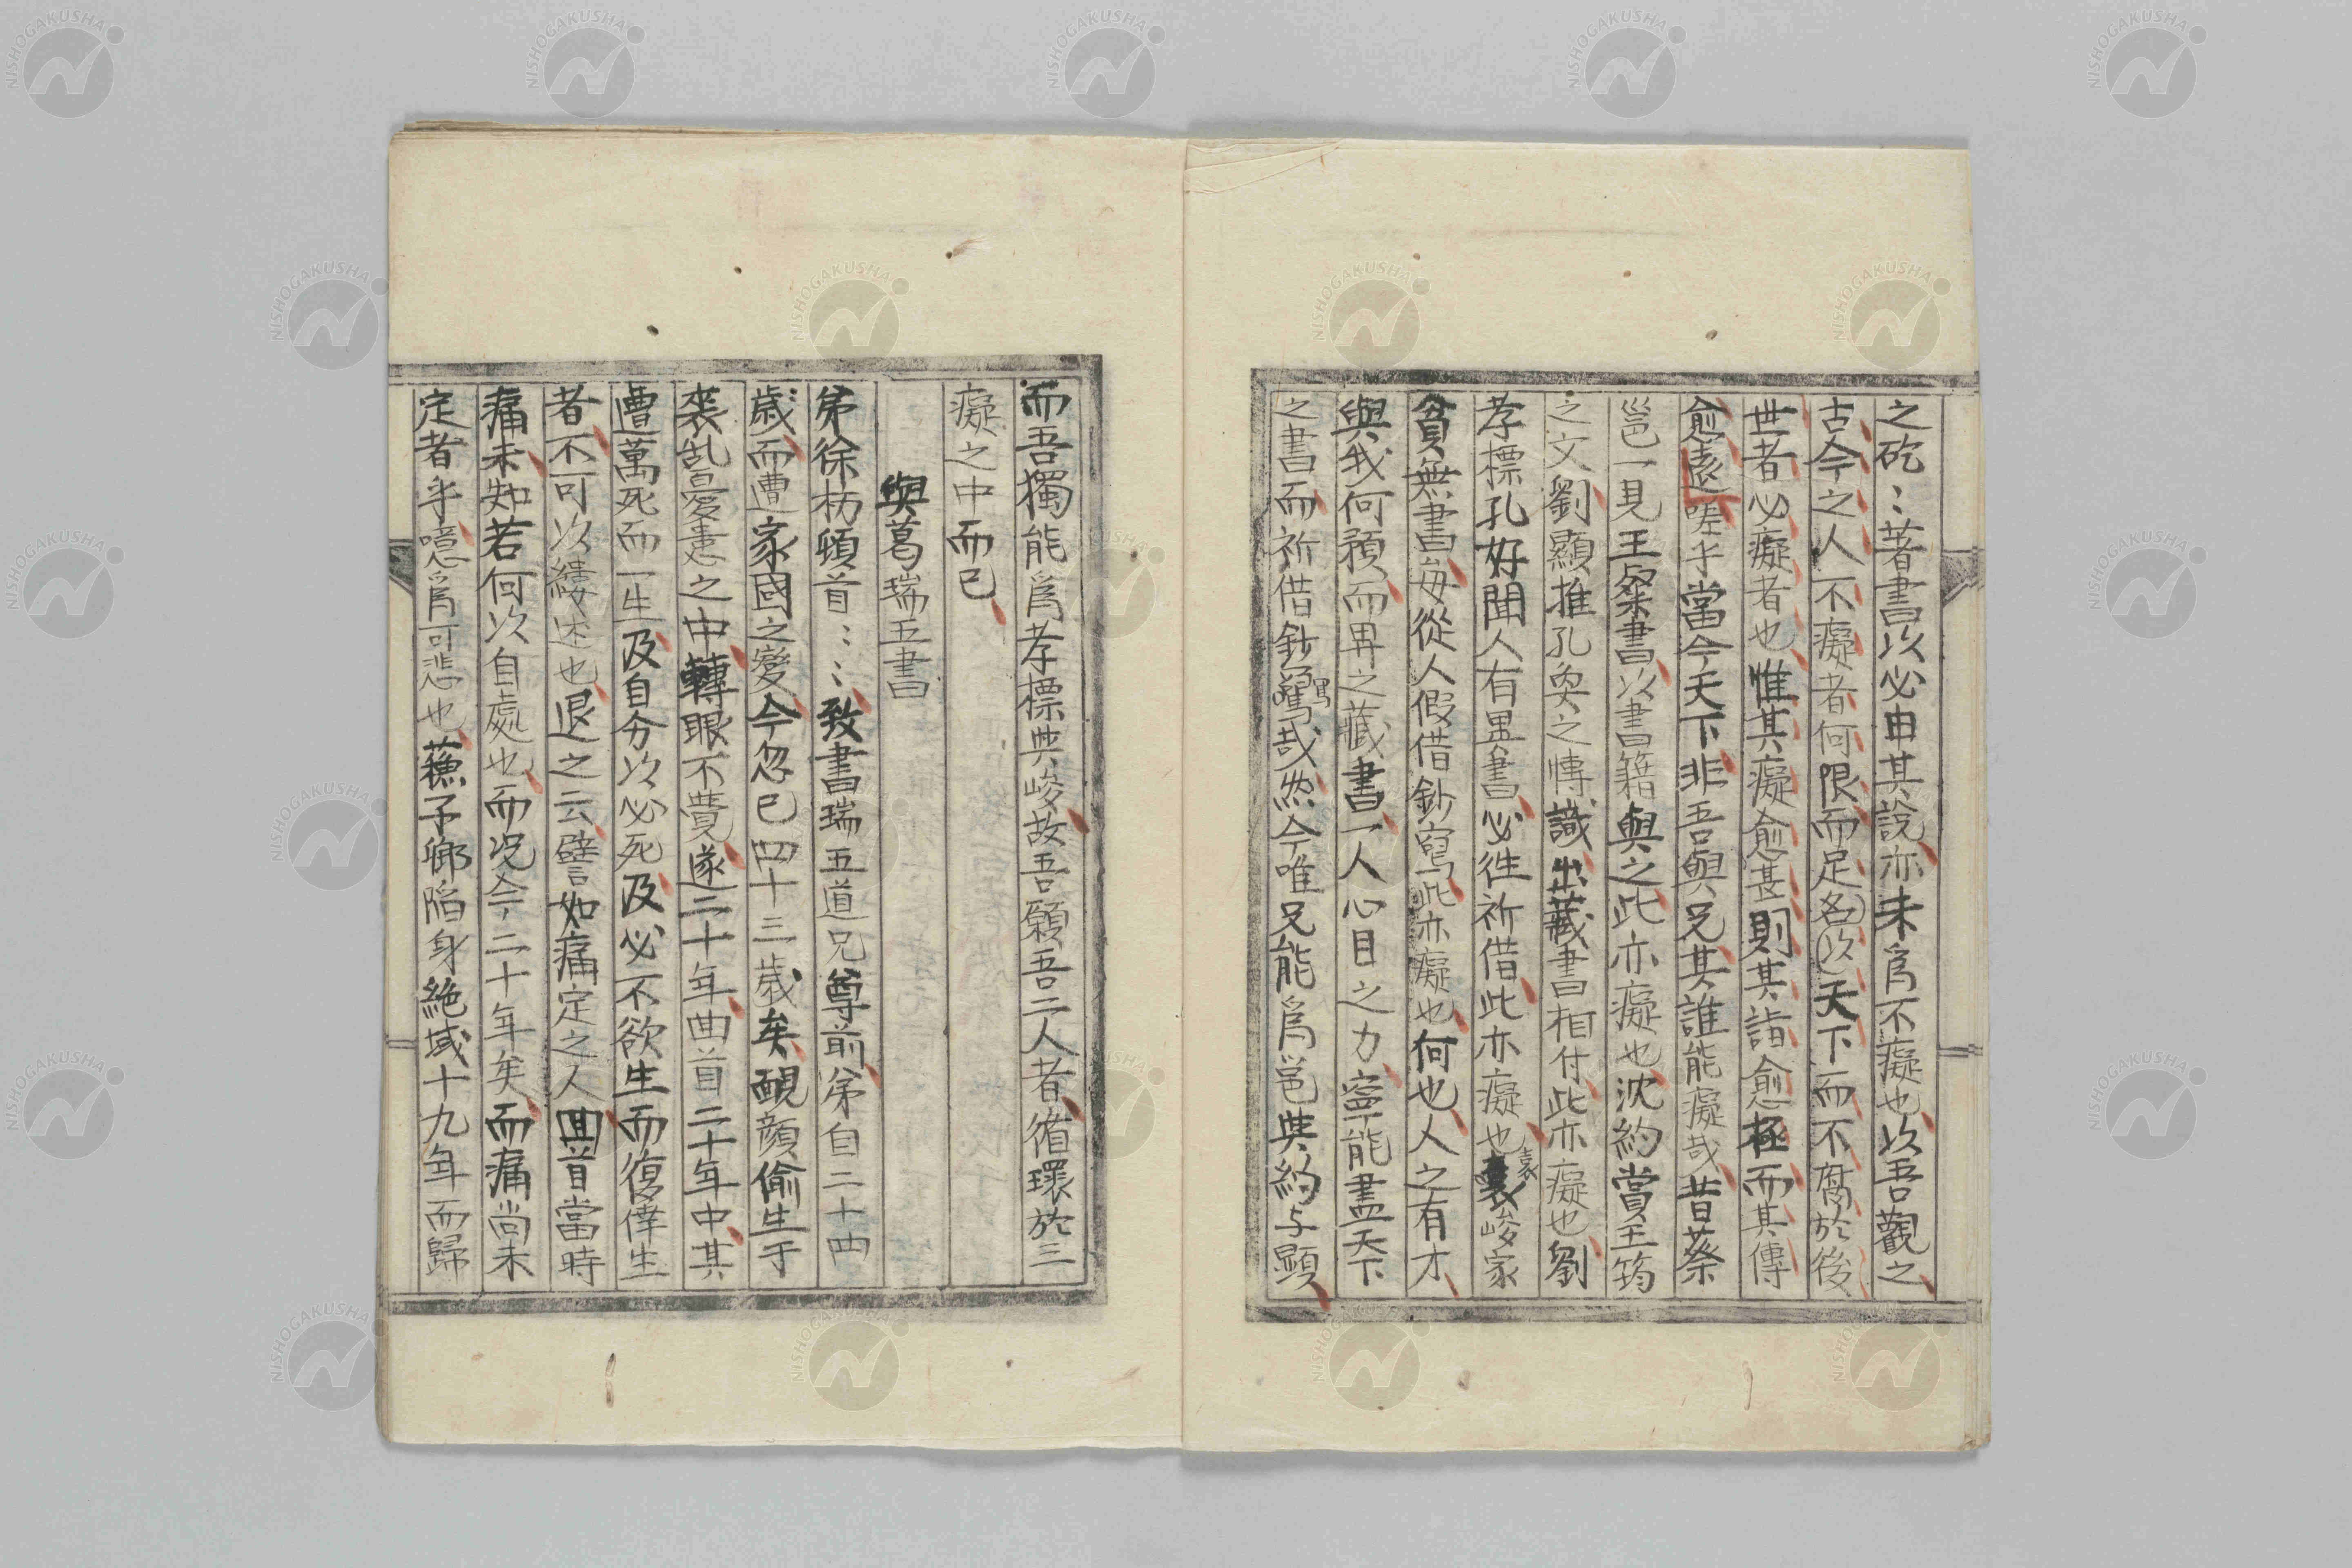 之矻〻著書以必申其説亦未爲不癡也以吾觀之
古今之人不癡者何限而足名以天下而不腐於後
世者必癡者也惟其癡愈甚則其詣愈極而其傳
愈遠嗟乎當今天下非吾與兄其誰能癡哉昔蔡
邕一見王粲書以書籍與之此亦癡也沈約賞王筠
之文劉顯推孔奐之博識出藏書相付此亦癡也劉
孝標孔好聞人有異書必徃祈借此亦癡也袁峻家
貧無書每從人假借鈔寫此亦癡也何也人之有才
與我何預而畀之藏書一人心目之力寧能盡天下
之書而祈借鈔寫哉然今唯兄能爲邕與約与顯
而吾獨能爲孝標與峻故吾願吾二人者循環於三
癡之中而已
與葛瑞五書
弟徐枋頓首〻〻致書瑞五道兄尊前弟自二十四
歲而遭家國之變今忽已四十三歲矣靦顔偷生于
喪乱憂患之中轉眼不覺遂二十年曲首二十年中其
遭萬死而一生及自分以必死及必不欲生而復倖生
者不可以縷述也退之云譬如痛定之人回首當時
痛未知若何以自處也而况今二十年矣而痛尚未
定者乎噫爲可悲也蘓子卿陷身絶域十九年而歸
NISHOGAKUSHA